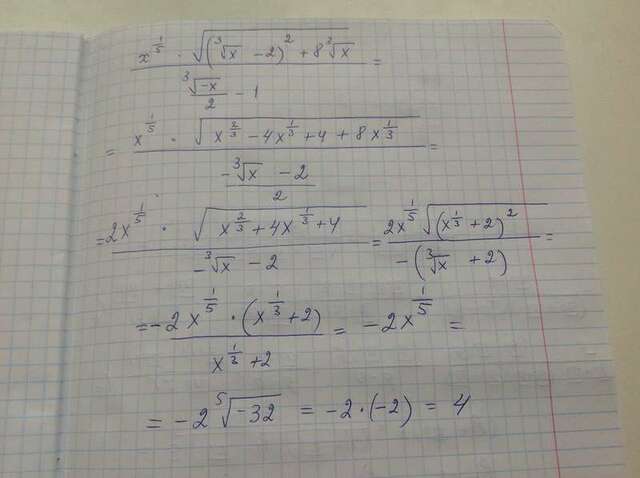 x^{1/5} · √((∛x - 2)² + 8∛x) / (∛(-x)/2 - 1) =
= x^{1/5} · √(x^{2/3} - 4x^{1/3} + 4 + 8x^{1/3}) / ((-∛x - 2)/2) =
= 2x^{1/5} · √(x^{2/3} + 4x^{1/3} + 4) / (-∛x - 2) = 2x^{1/5} √((x^{1/3} + 2)²) / (-(∛x + 2)) =
= -2x^{1/5} · (x^{1/3} + 2) / (x^{1/3} + 2) = -2x^{1/5} =
= -2 ⁵√(-32) = -2 · (-2) = 4